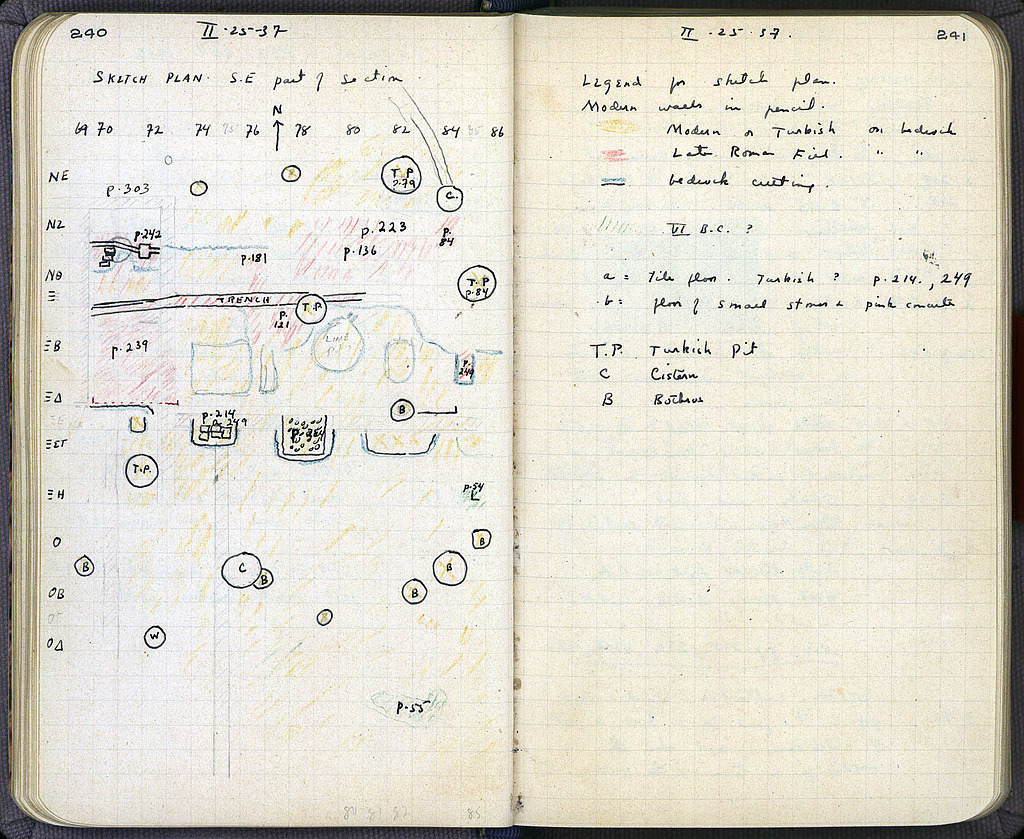 240
II · 25 · 37
SKETCH PLAN. S.E part of Section
N
69 70 72 74 75 76 78 80 82 84 85 86
ΝΕ
p. 303
T.P
p.79
C.
ΝΖ
p. 242
p. 223
p. 84
p. 181
p. 136
ΝΘ
T.P
p.84
Ξ
TRENCH
T.P.
p. 121
LIME
ΞΒ
p. 239
p. 249
ΞΔ
B
p. 214
a 249
ΞΣΤ
T.P.
ΞΗ
p. 54
Ο
B
B
C
B
B
ΟΒ
B
ΟΔ
W
p. 55
84 81 82 85
II · 25 · 37.
241
Legend for sketch plan.
Modern walls in pencil.
Modern or Turkish on bedrock
Late Roman Fill. " "
bedrock cutting.
VI B.C. ?
a = Tile floor. Turkish ? p. 214., 249
b = floor of small stones & pink concrete
T.P. Turkish Pit
C Cistern
B Bothros